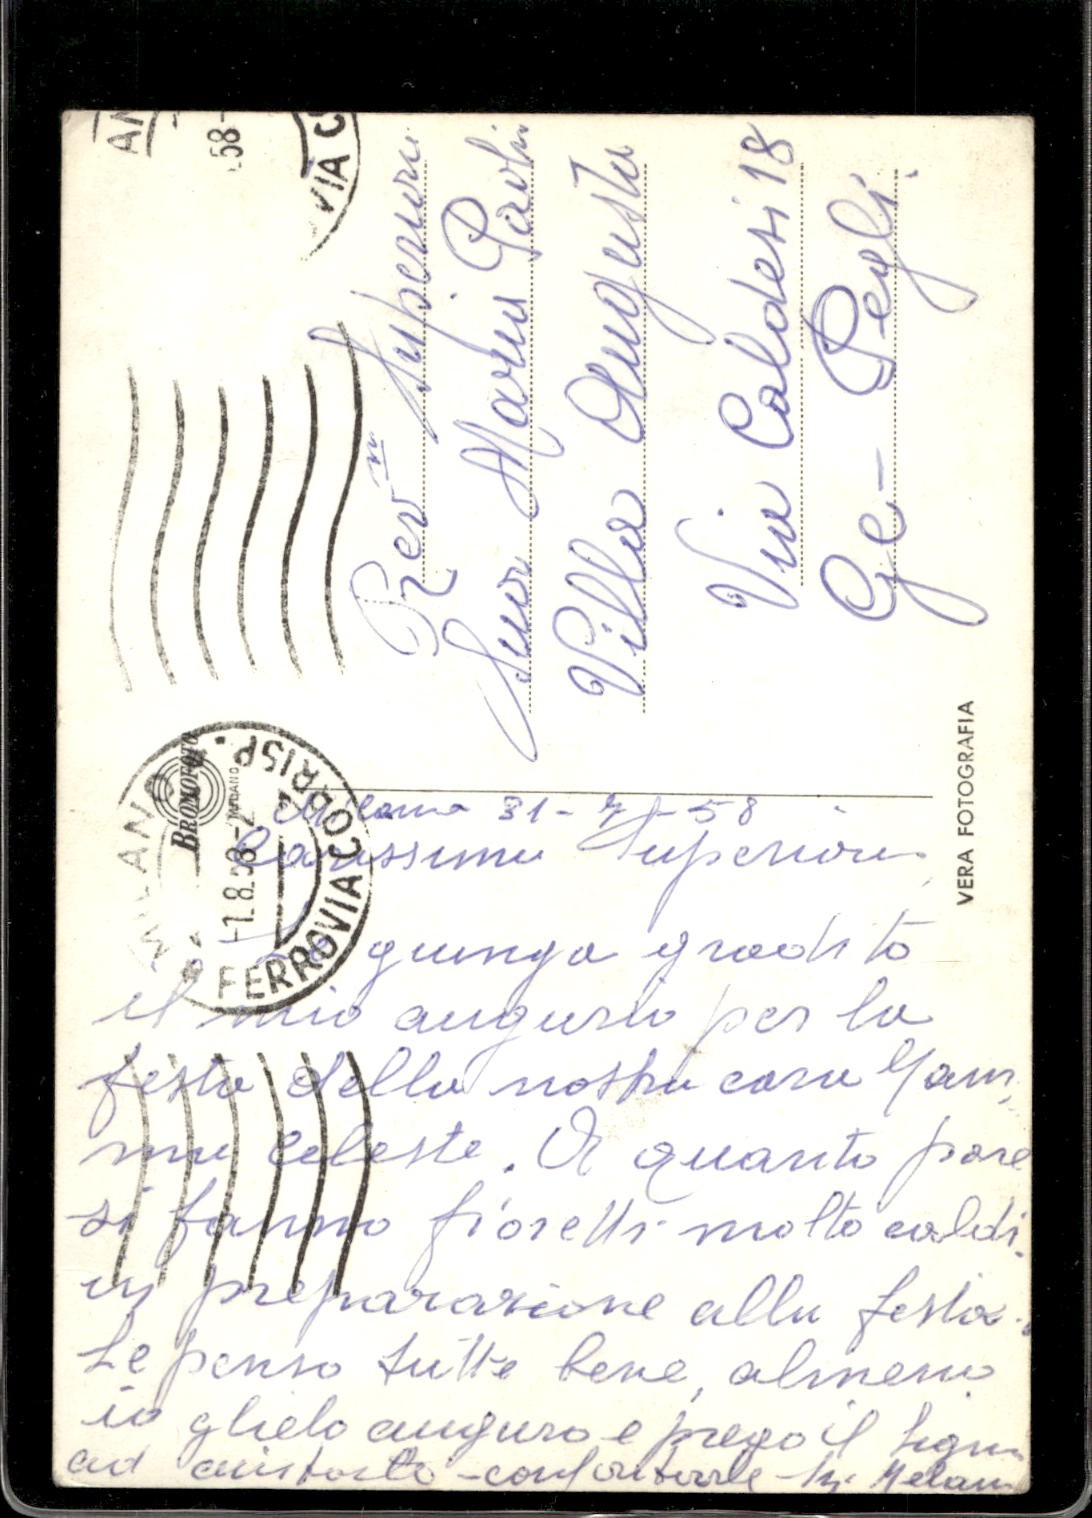 Milano 31-7-58
Carissima Superiora,
Le giunga gradito
il mio augurio per la
festa della nostra cara Mam
ma celeste. A quanto pare
si fanno fioretti molto caldi
in preparazione alla festa.
Le penso tutte bene, almeno
io glielo auguro e prego il
ad aiutarle - confortarle
Rev Superiora
Suor Maria Paolin
Villa Augusta
Via Caldesi 18
Ge - Pegli.
MILANO
FERROVIA CORRISP.
-1.8.58-2
BROMOFOTO
MILANO
58-
VIA C
VERA FOTOGRAFIA